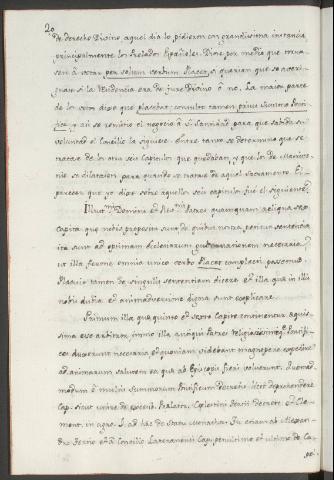 20
de derecho Divino, aquel dia lo pidieron con grandissima instancia
principalmente los Prelados Españoles. Diose por medio que
sen à votar per solum verbum Placet, y querian que se averi-
guasse si la Residencia era de jure Divino ò no. La maior parte
de los votos dixo que placebat, consulto tamen prius Summo Ponti-
fice, y assi se remitio el negocio à S. Santidad para que sabida su
voluntad el Concilio la siguiese. Entre tanto se determino que se
tratasse de los otros seis capitulos que quedaban, y que los de Matrimo-
nio se dilatasen para quando se tratase de aquel Sacramento. El
parecer que yo dixe sobre aquellos seis capitulos fue el siguiente
Illmi Domini et Rmi Patres quamquam reliqua sex
capita que nobis proposita sunt de quibus petitur sententia
ita sunt ad optimam Ecclesiarum gubernationem necessaria
ut illa ferme omnia unico verbo Placet complecti possemus.
Placuit tamen de singulis sententiam dicere et illa quae in illis
nobis dubia et animadversione digna sunt explicare.
Primum illa quae quinto et sexto Capite continentur aequis-
sima esse arbitror, immo illa antiqui Patres religiosissimi et Pontifi-
ces duxerunt necessaria et quoniam videbant magnopere expedire
ad animarum salutem ea quae ab Episcopis fieri voluerunt. Quemad-
modum è multis Summorum Pontificum Decretis licet deprehendere
Cap. sicut unire de excess. Praelator. Caelestini tertii decreto, et Cle-
ment. in agro. § ad haec de statu Monachor. In
dro Tertio et à Concilio Lateranensi Cap. penultimo et ultimo de Ca-